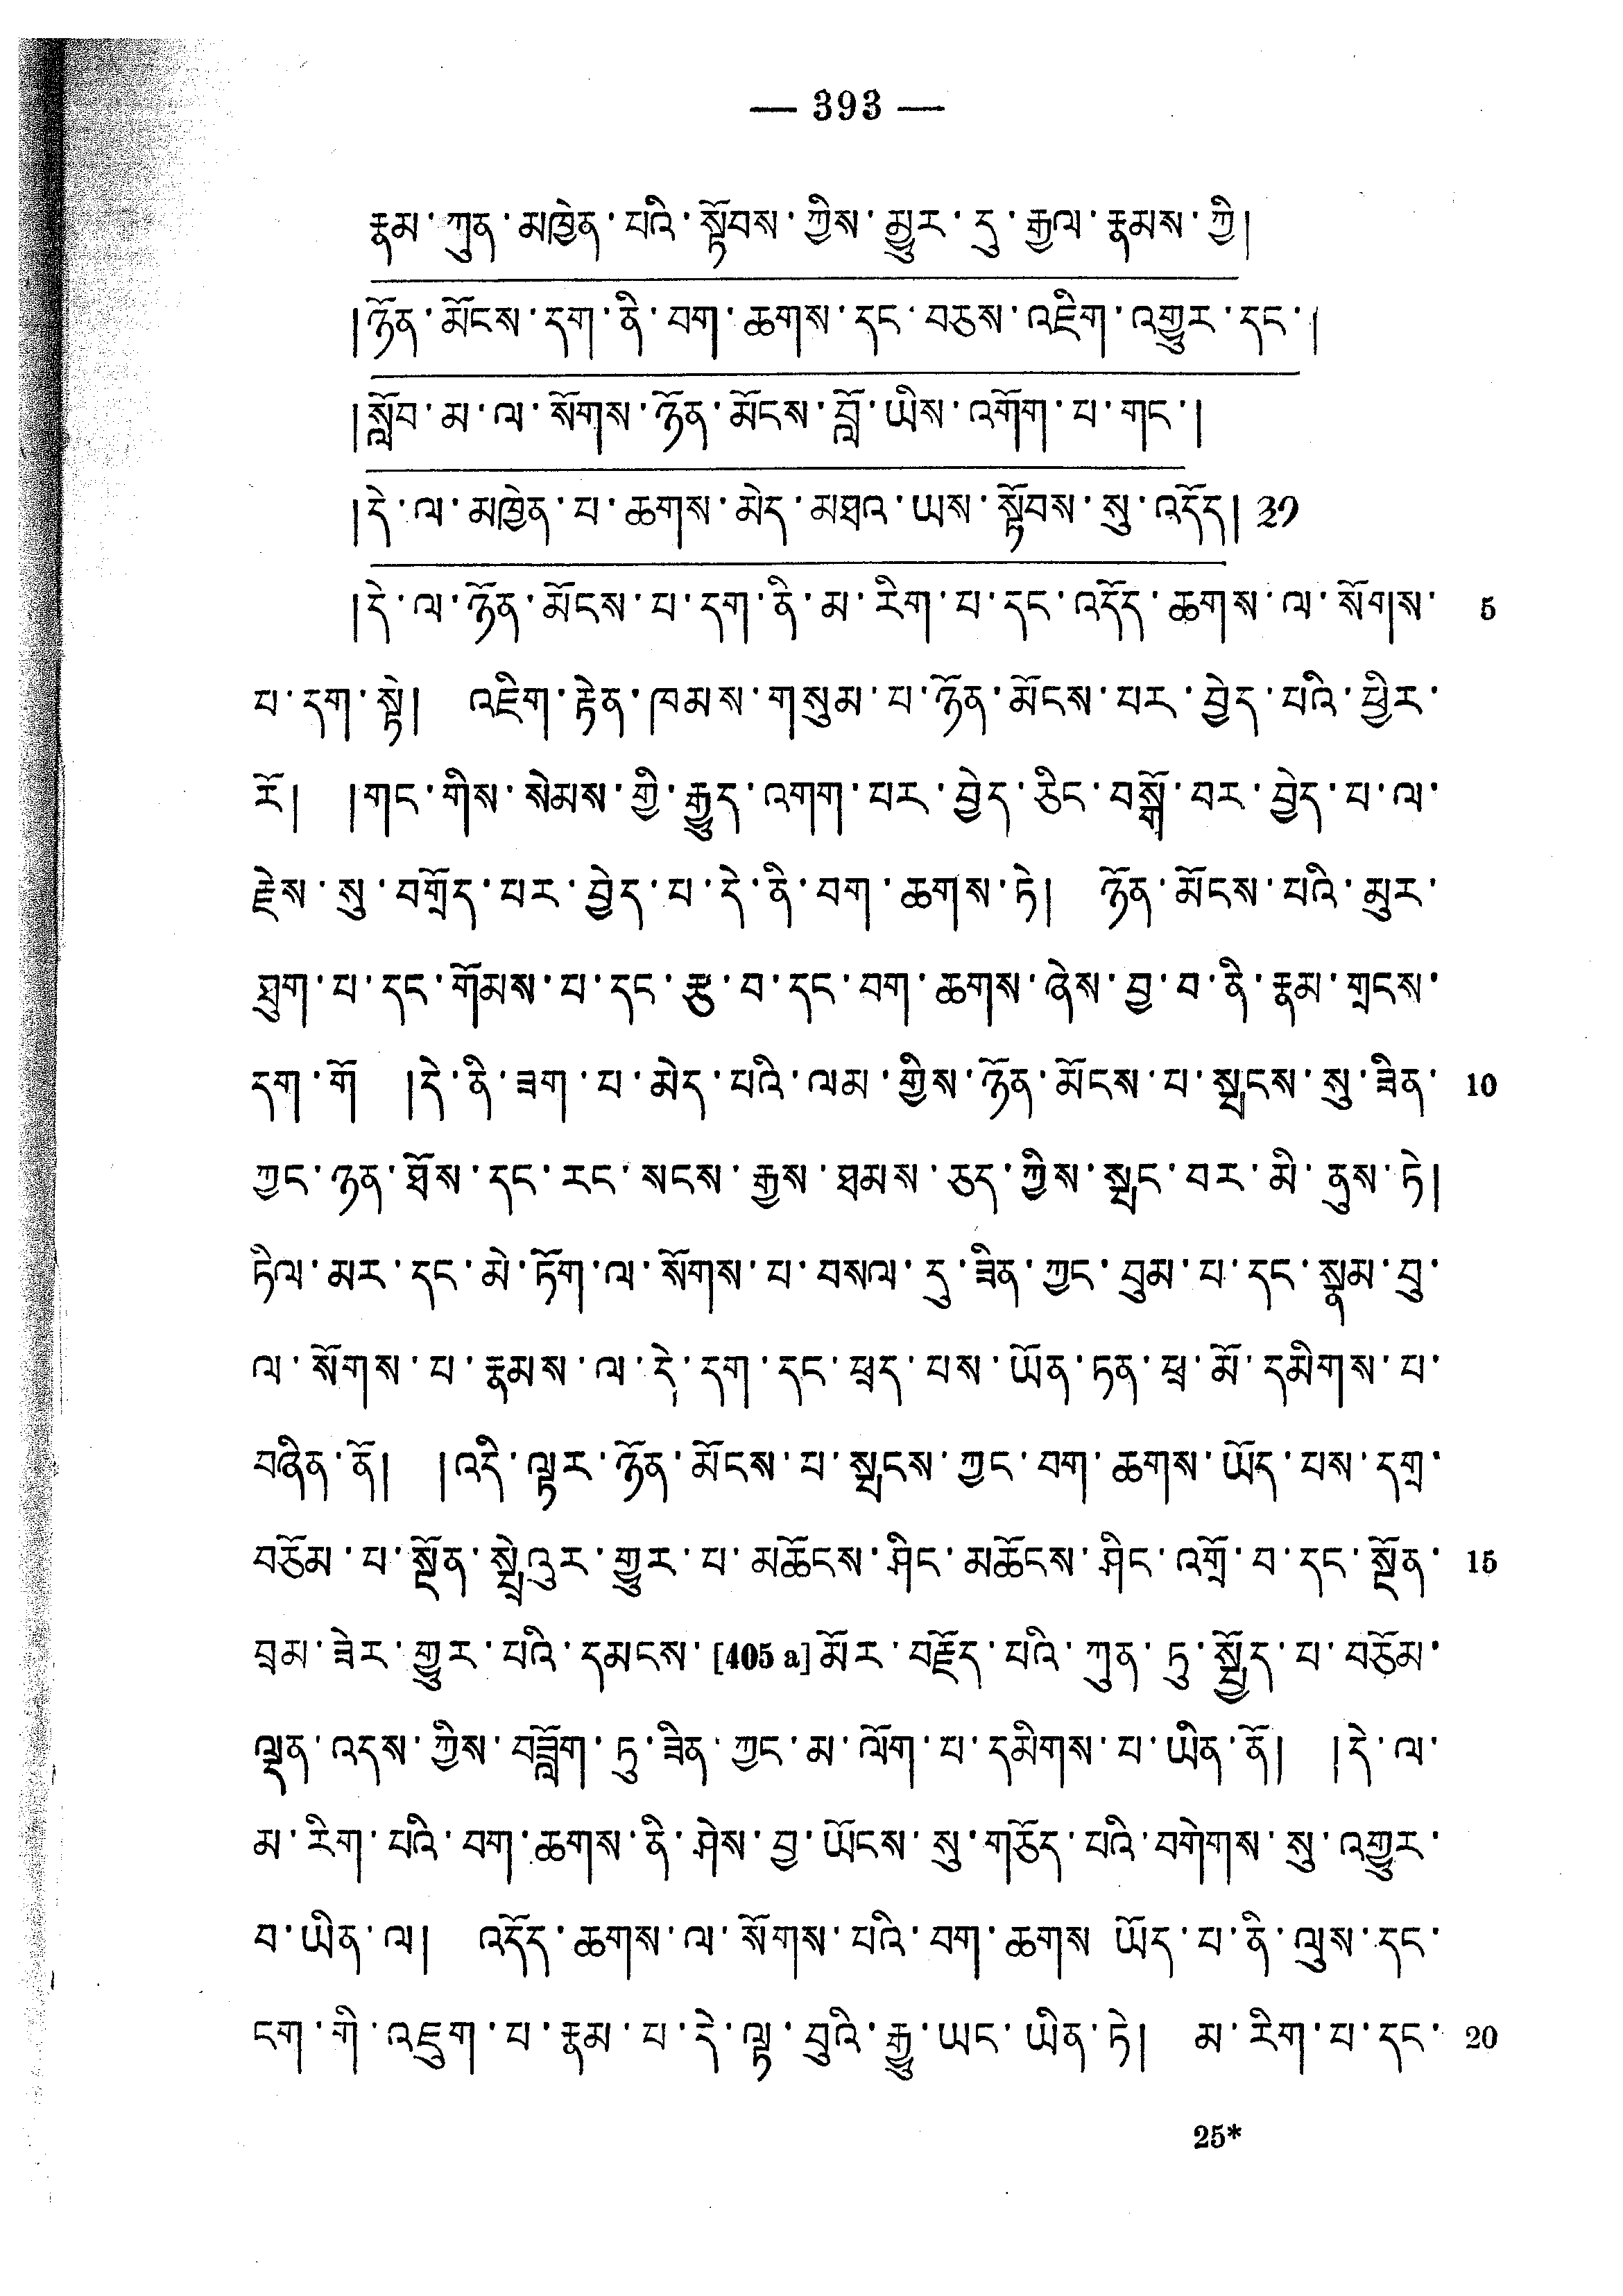 — 393 —
རྣམ་ཀུན་མཁྱེན་པའི་སྟོབས་ཀྱིས་མྱུར་དུ་རྒྱལ་རྣམས་ཀྱི།
།ཉོན་མོངས་དག་ནི་བག་ཆགས་དང་བཅས་འཇིག་འགྱུར་དང་།
།སློབ་མ་ལ་སོགས་ཉོན་མོངས་བློ་ཡིས་འགོག་པ་གང་།
།དེ་ལ་མཁྱེན་པ་ཆགས་མེད་མཐའ་ཡས་སྟོབས་སུ་འདོད། ༣༡
།དེ་ལ་ཉོན་མོངས་པ་དག་ནི་མ་རིག་པ་དང་འདོད་ཆགས་ལ་སོགས་ 5
པ་དག་སྟེ། འཇིག་རྟེན་ཁམས་གསུམ་པ་ཉོན་མོངས་པར་བྱེད་པའི་ཕྱིར་
རོ། །གང་གིས་སེམས་ཀྱི་རྒྱུད་འགག་པར་བྱེད་ཅིང་བསྒོ་བར་བྱེད་པ་ལ་
རྗེས་སུ་བགྲོད་པར་བྱེད་པ་དེ་ནི་བག་ཆགས་ཏེ། ཉོན་མོངས་པའི་མུར་
ཐུག་པ་དང་གོམས་པ་དང་རྩ་བ་དང་བག་ཆགས་ཞེས་བྱ་བ་ནི་རྣམ་གྲངས་
དག་གོ །དེ་ནི་ཟག་པ་མེད་པའི་ལམ་གྱིས་ཉོན་མོངས་པ་སྤངས་སུ་ཟིན་ 10
ཀྱང་ཉན་ཐོས་དང་རང་སངས་རྒྱས་ཐམས་ཅད་ཀྱིས་སྤང་བར་མི་ནུས་ཏེ།
ཏིལ་མར་དང་མེ་ཏོག་ལ་སོགས་པ་བསལ་དུ་ཟིན་ཀྱང་བུམ་པ་དང་སྣམ་བུ་
ལ་སོགས་པ་རྣམས་ལ་དེ་དག་དང་ཕྲད་པས་ཡོན་ཏན་ཕྲ་མོ་དམིགས་པ་
བཞིན་ནོ། །འདི་ལྟར་ཉོན་མོངས་པ་སྤངས་ཀྱང་བག་ཆགས་ཡོད་པས་དགྲ་
བཅོམ་པ་སྔོན་སྤྲེའུར་གྱུར་པ་མཆོངས་ཤིང་མཆོངས་ཤིང་འགྲོ་བ་དང་སྔོན་ 15
བྲམ་ཟེར་གྱུར་པའི་དམངས་[405 a]མོར་བརྗོད་པའི་ཀུན་ཏུ་སྤྱོད་པ་བཅོམ་
ལྡན་འདས་ཀྱིས་བཟློག་ཏུ་ཟིན་ཀྱང་མ་ལོག་པ་དམིགས་པ་ཡིན་ནོ། །དེ་ལ་
མ་རིག་པའི་བག་ཆགས་ནི་ཤེས་བྱ་ཡོངས་སུ་གཅོད་པའི་བགེགས་སུ་འགྱུར་
བ་ཡིན་ལ། འདོད་ཆགས་ལ་སོགས་པའི་བག་ཆགས ཡོད་པ་ནི་ལུས་དང་
ངག་གི་འཇུག་པ་རྣམ་པ་དེ་ལྟ་བུའི་རྒྱུ་ཡང་ཡིན་ཏེ། མ་རིག་པ་དང་ 20
25*